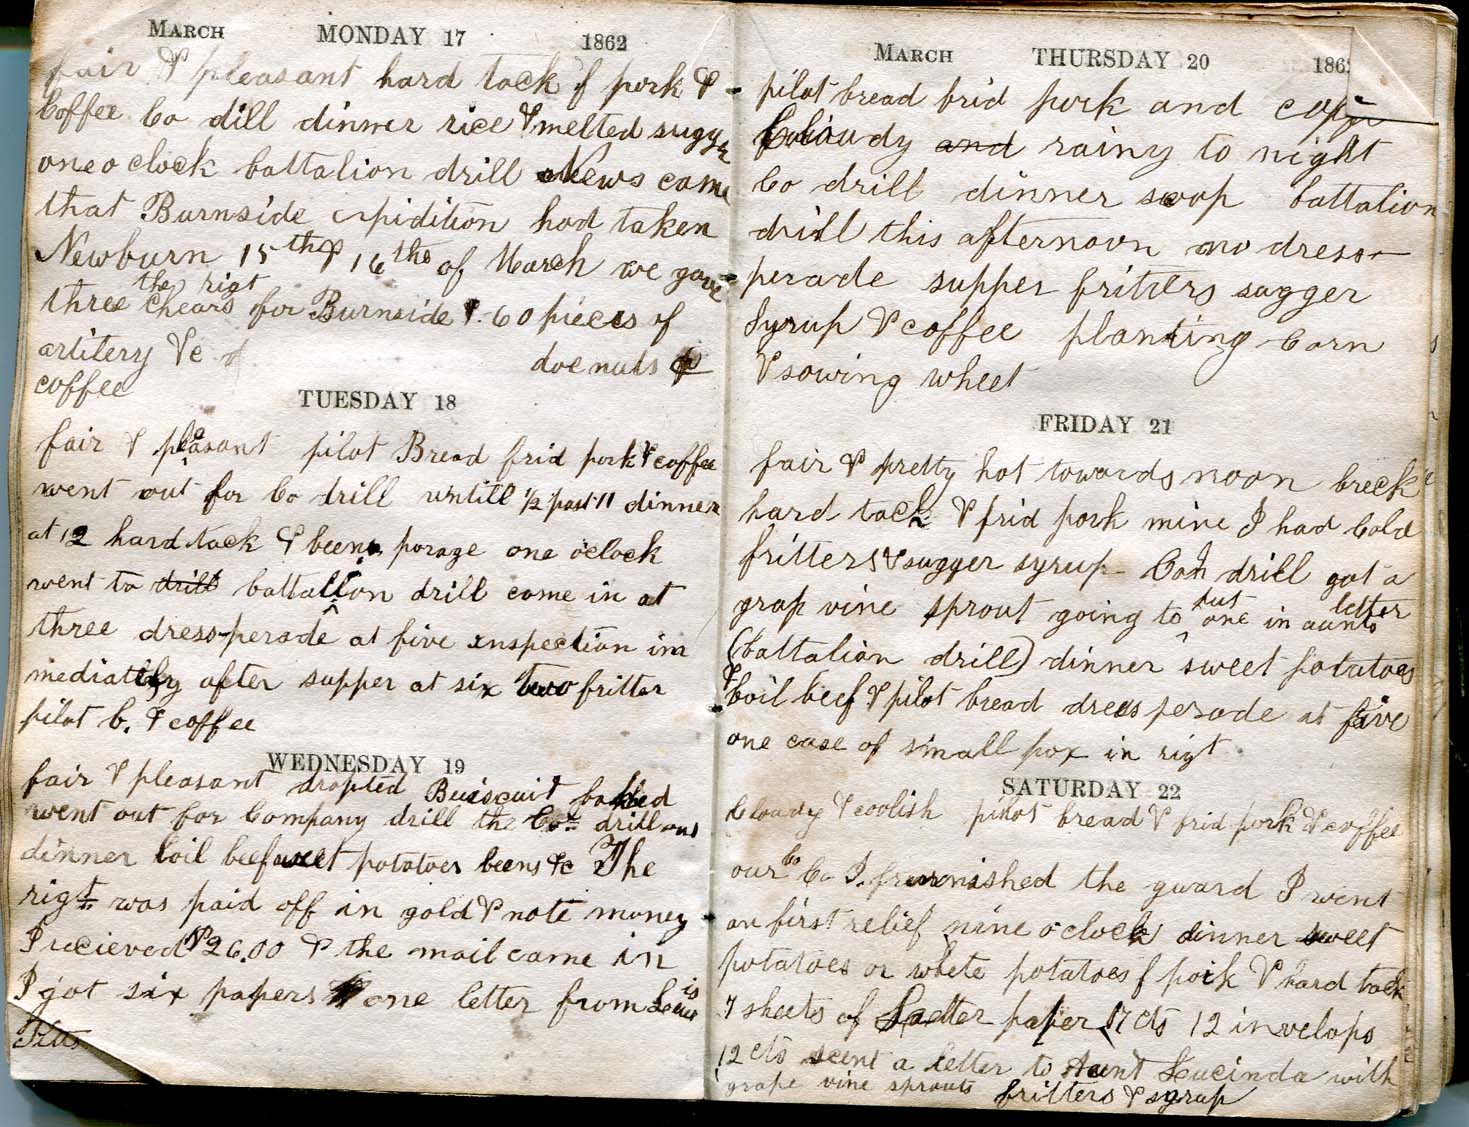 MARCH MONDAY 17 1862
fair & pleasant hard tack f pork &
Coffee Co dill dinner rice & melted suggr
one o clock battalion drill News came
that Burnside expidition had taken
Newburn 15th & 16ths of March we gave
the rigt
three chears for Burnside & 60 pieces of
artilery &c doe nuts &
coffee
TUESDAY 18
fair & pleasant pilot Bread frid pork & coffee
went out for Co drill untill 1/2 past 11 dinner
at 12 hard tack & beens porage one oclock
went to drill battallion drill come in at
three dress-perade at five inspection im
mediatly after supper at six two fritter
pilot b. & coffee
WEDNESDAY 19
fair & pleasant dropted Buiscuit baked
went out for Company drill the Co drill out
dinner boil beef sweet potatoes beens &c The
rigt was paid off in gold & note money
I recieved $26.00 & the mail came in
I got six papers & one letter from Lewis
MARCH THURSDAY 20 186
pilot bread frid pork and coffe
Cloudy and rainy to night
Co drill dinner soop battalion
drill this afternoon no dress
perade supper fritters sugger
Syrup & coffee planting Corn
& sowing wheet
FRIDAY 21
fair & pretty hot towards noon breck
hard tack & frid pork mine I had Cold
fritters & sugger syrup Con drill got a
grap vine sprout going to put one in aunts letter
(battalion drill) dinner sweet potatoes
& boil beef & pilot bread dress perade at five
one case of small pox in rigt
SATURDAY 22
Cloudy & coolish pilot bread & frid pork & coffee
our Co Co I. furnished the guard I went
on first relief nine o clock dinner sweet
potatoes or white potatoes f pork & hard tack
7 sheets of Letter paper 17 cts 12 invelops
12 cts scent a letter to Aunt Leucinda with
grape vine sprouts fritters & syrup